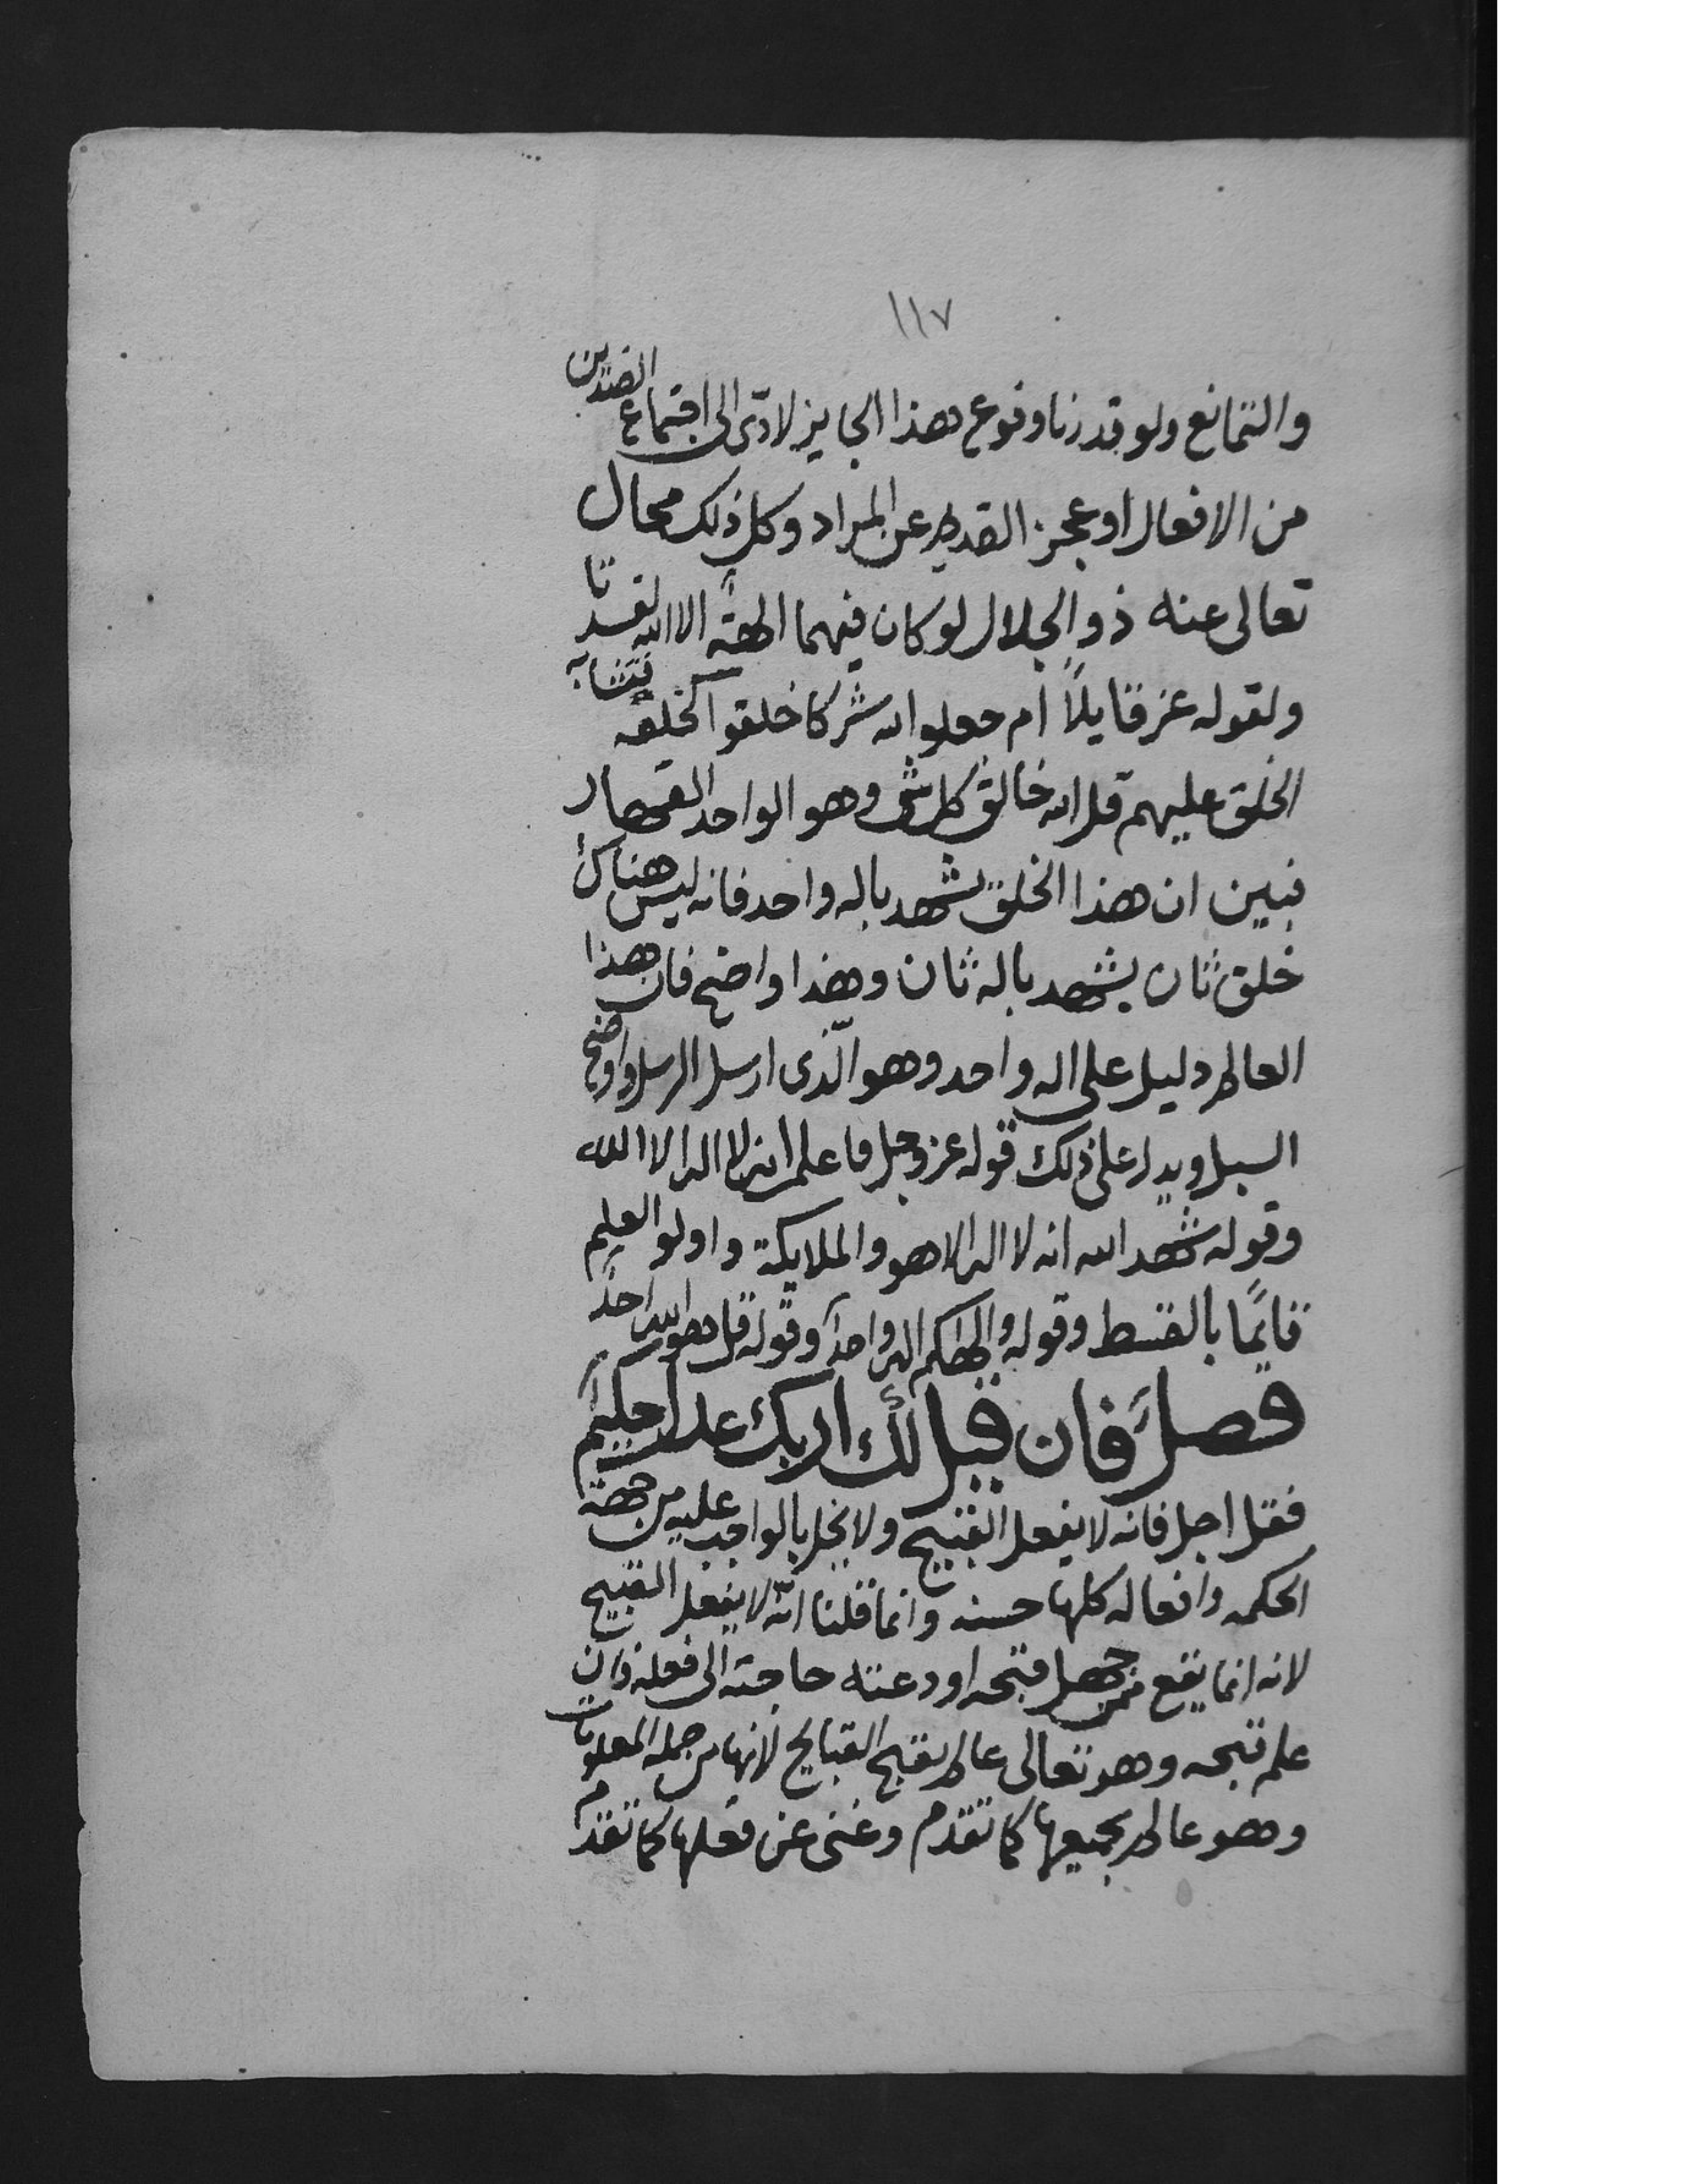 ١١٧
والتمانع ولو قدرنا وقوع هذا الجايز لادّى الى اجتماع الضدين
من الافعال او عجز القديم عن المراد وكل ذلك محال
تعالى عنه ذو الجلال لو كان فيهما الهة الا الله لفسدتا
ولقوله عز قايلاً ام جعلوا لله شركا خلقوا كخلقه فتشابه
الخلق عليهم قل الله خالق كل شى وهو الواحد القهار
فبين ان هذا الخلق يشهد باله واحد فانه ليس هناك
خلق ثان يشهد باله ثان وهذا واضح فان هذا
العالم دليل على اله واحد وهو الّذى ارسل الرسل واوضح
السبل ويدل على ذلك قوله عز وجل فاعلم انه لا اله الا الله
وقوله شهد الله انه لا اله الا هو والملايكة واولو العلم
قايمًا بالقسط وقوله والهكم اله واحد وقوله قل هو الله احد
فصل فان قيل لك اربك عدل حكيم
فقل اجل فانه لا يفعل القبيح ولا يخل بالواجب عليه من جهة
الحكمه وافعاله كلها حسنه وانما قلنا انّه لا يفعل القبيح
لانه انما يقع ممن جهل قبحه او دعته حاجته الى فعله وان
علم قبحه وهو تعالى عالم بقبح القبايح لانها من جمله المعلومات
وهو عالم بجميعها كما تقدم وغنى عن فعلها كما تقدم